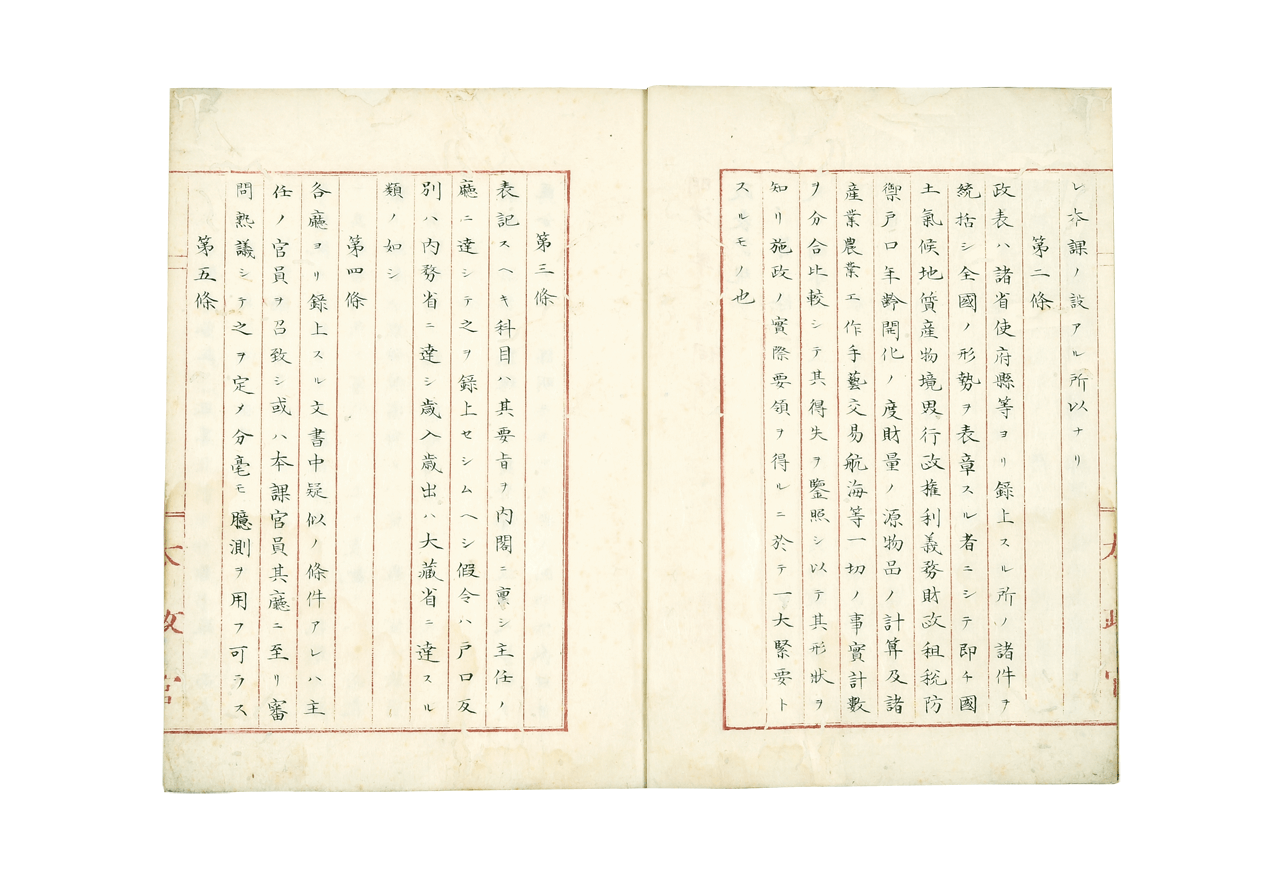 レ本課ノ設アル所以ナリ
第二條
政表ハ諸省使府縣等ヨリ録上スル所ノ諸件ヲ
統括シ全國ノ形勢ヲ表章スル者ニシテ即チ國
土氣候地質産物境界行政権利義務財政租税防
禦戸口年齢開化ノ度財量ノ源物品ノ計算及諸
産業農業工作手藝交易航海等一切ノ事實計數
ヲ分合比較シテ其得失ヲ鑒照シ以テ其形狀ヲ
知リ施政ノ實際要領ヲ得ルニ於テ一大緊要ト
スルモノ也
第三條
表記スヘキ科目ハ其要旨ヲ内閣ニ稟シ主任ノ
廳ニ達シテ之ヲ録上セシムヘシ假令ハ戸口反
別ハ内務省ニ達シ歳入歳出ハ大藏省ニ達スル
類ノ如シ
第四條
各廳ヨリ録上スル文書中疑似ノ條件アレハ主
任ノ官員ヲ召致シ或ハ本課官員其廳ニ至リ審
問熟議シテ之ヲ定メ分毫モ臆測ヲ用フ可ラス
第五條
太政官
太政官